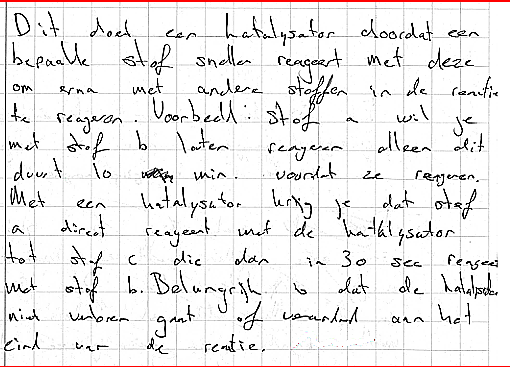 Dit doet een katalysator doordat een
bepaalde stof sneller reageert met deze
om erna met andere stoffen in de reactie
te reageren. Voorbeeld: stof a wil je
met stof b laten reageren alleen dit
duurt 10 min. voordat ze reageren.
Met een katalysator krijg je dat stof
a direct reageert met de katalysator
tot stof c die dan in 30 sec reageer
met stof b. Belangrijk is dat de katalysator
niet verloren gaat of veranderd aan het
eind van de reactie.